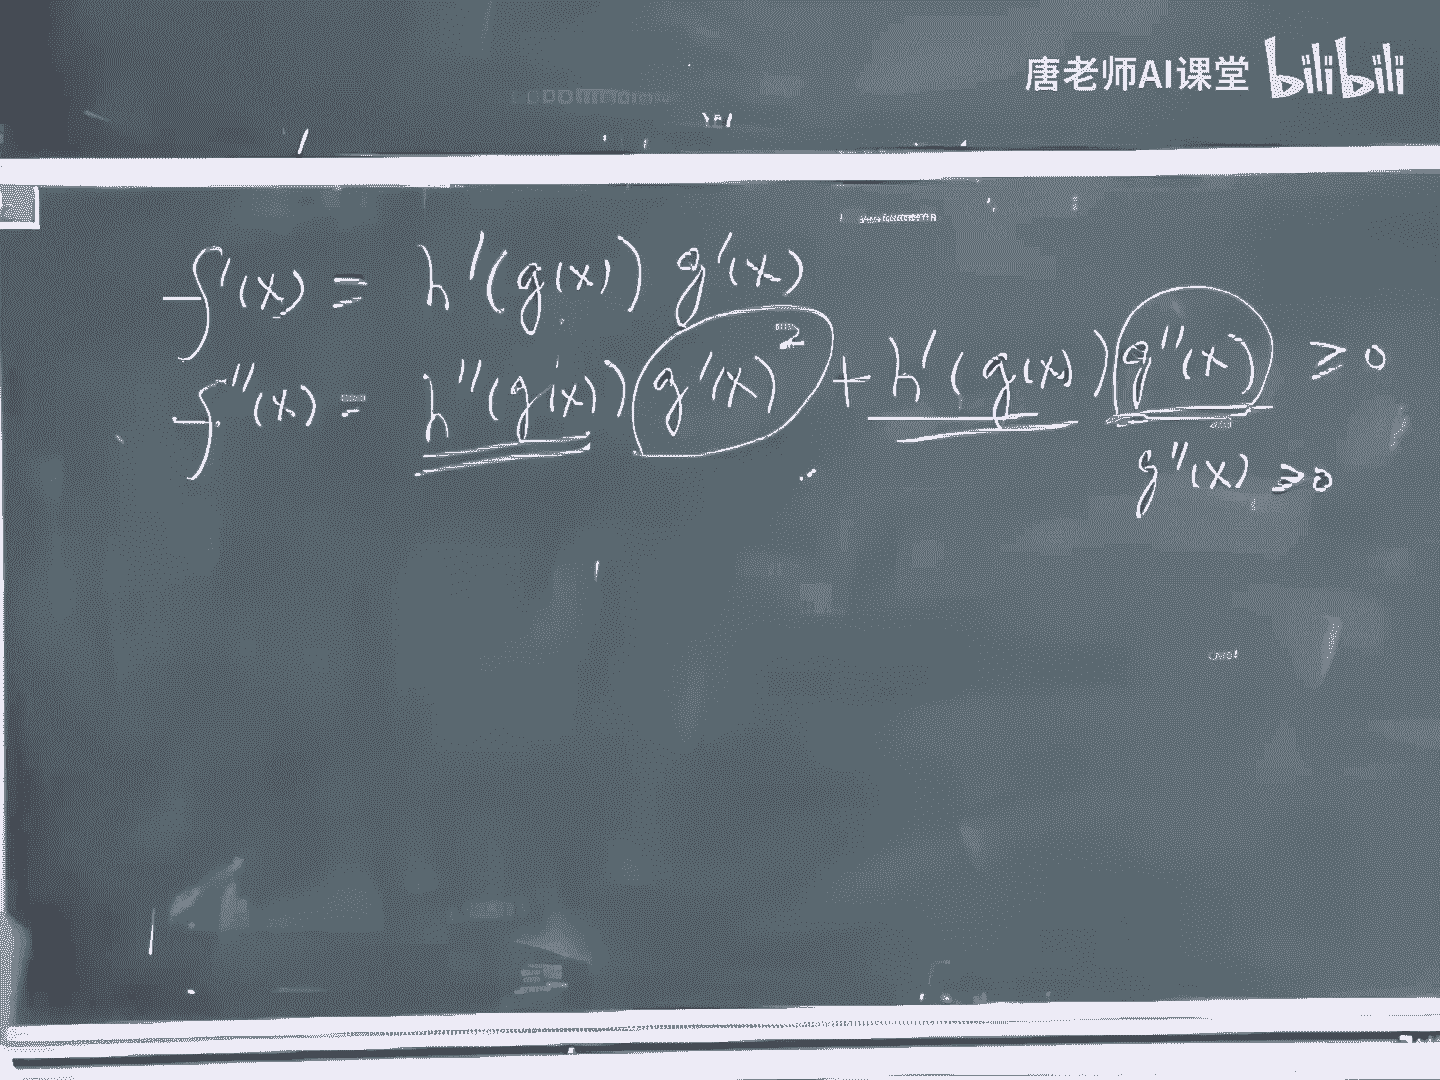 唐老师AI课堂 bilibili
f'(x) = h'(g(x)) g'(x)
f''(x) = h''(g(x)) g'(x)² + h'(g(x)) g''(x) ≥ 0
g''(x) ≥ 0